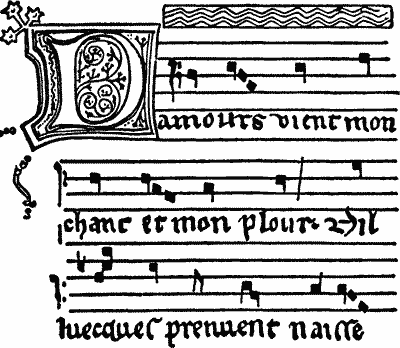 Damours vient mon
chant et mon plour. ⁊ il
luecques prenuent naisse